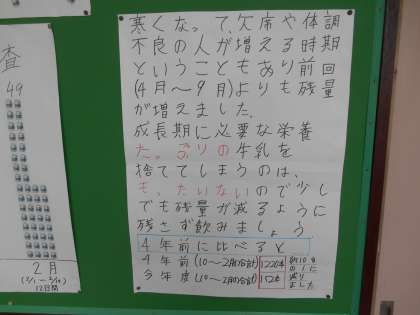 査
49
2月
(2/1～2/20)
12日間
寒くなって、欠席や体調
不良の人が増える時期
ということもあり前回
(4月～9月)よりも残量
が増えました。
成長期に必要な栄養
たっぷりの牛乳を
捨ててしまうのは、
もったいないので少し
でも残量が減るように
残さず飲みましょう
4年前に比べると
4年前(10～2月の合計)1220本
今年度(10～2月の合計)152本
約10分
の1に
減り
ました